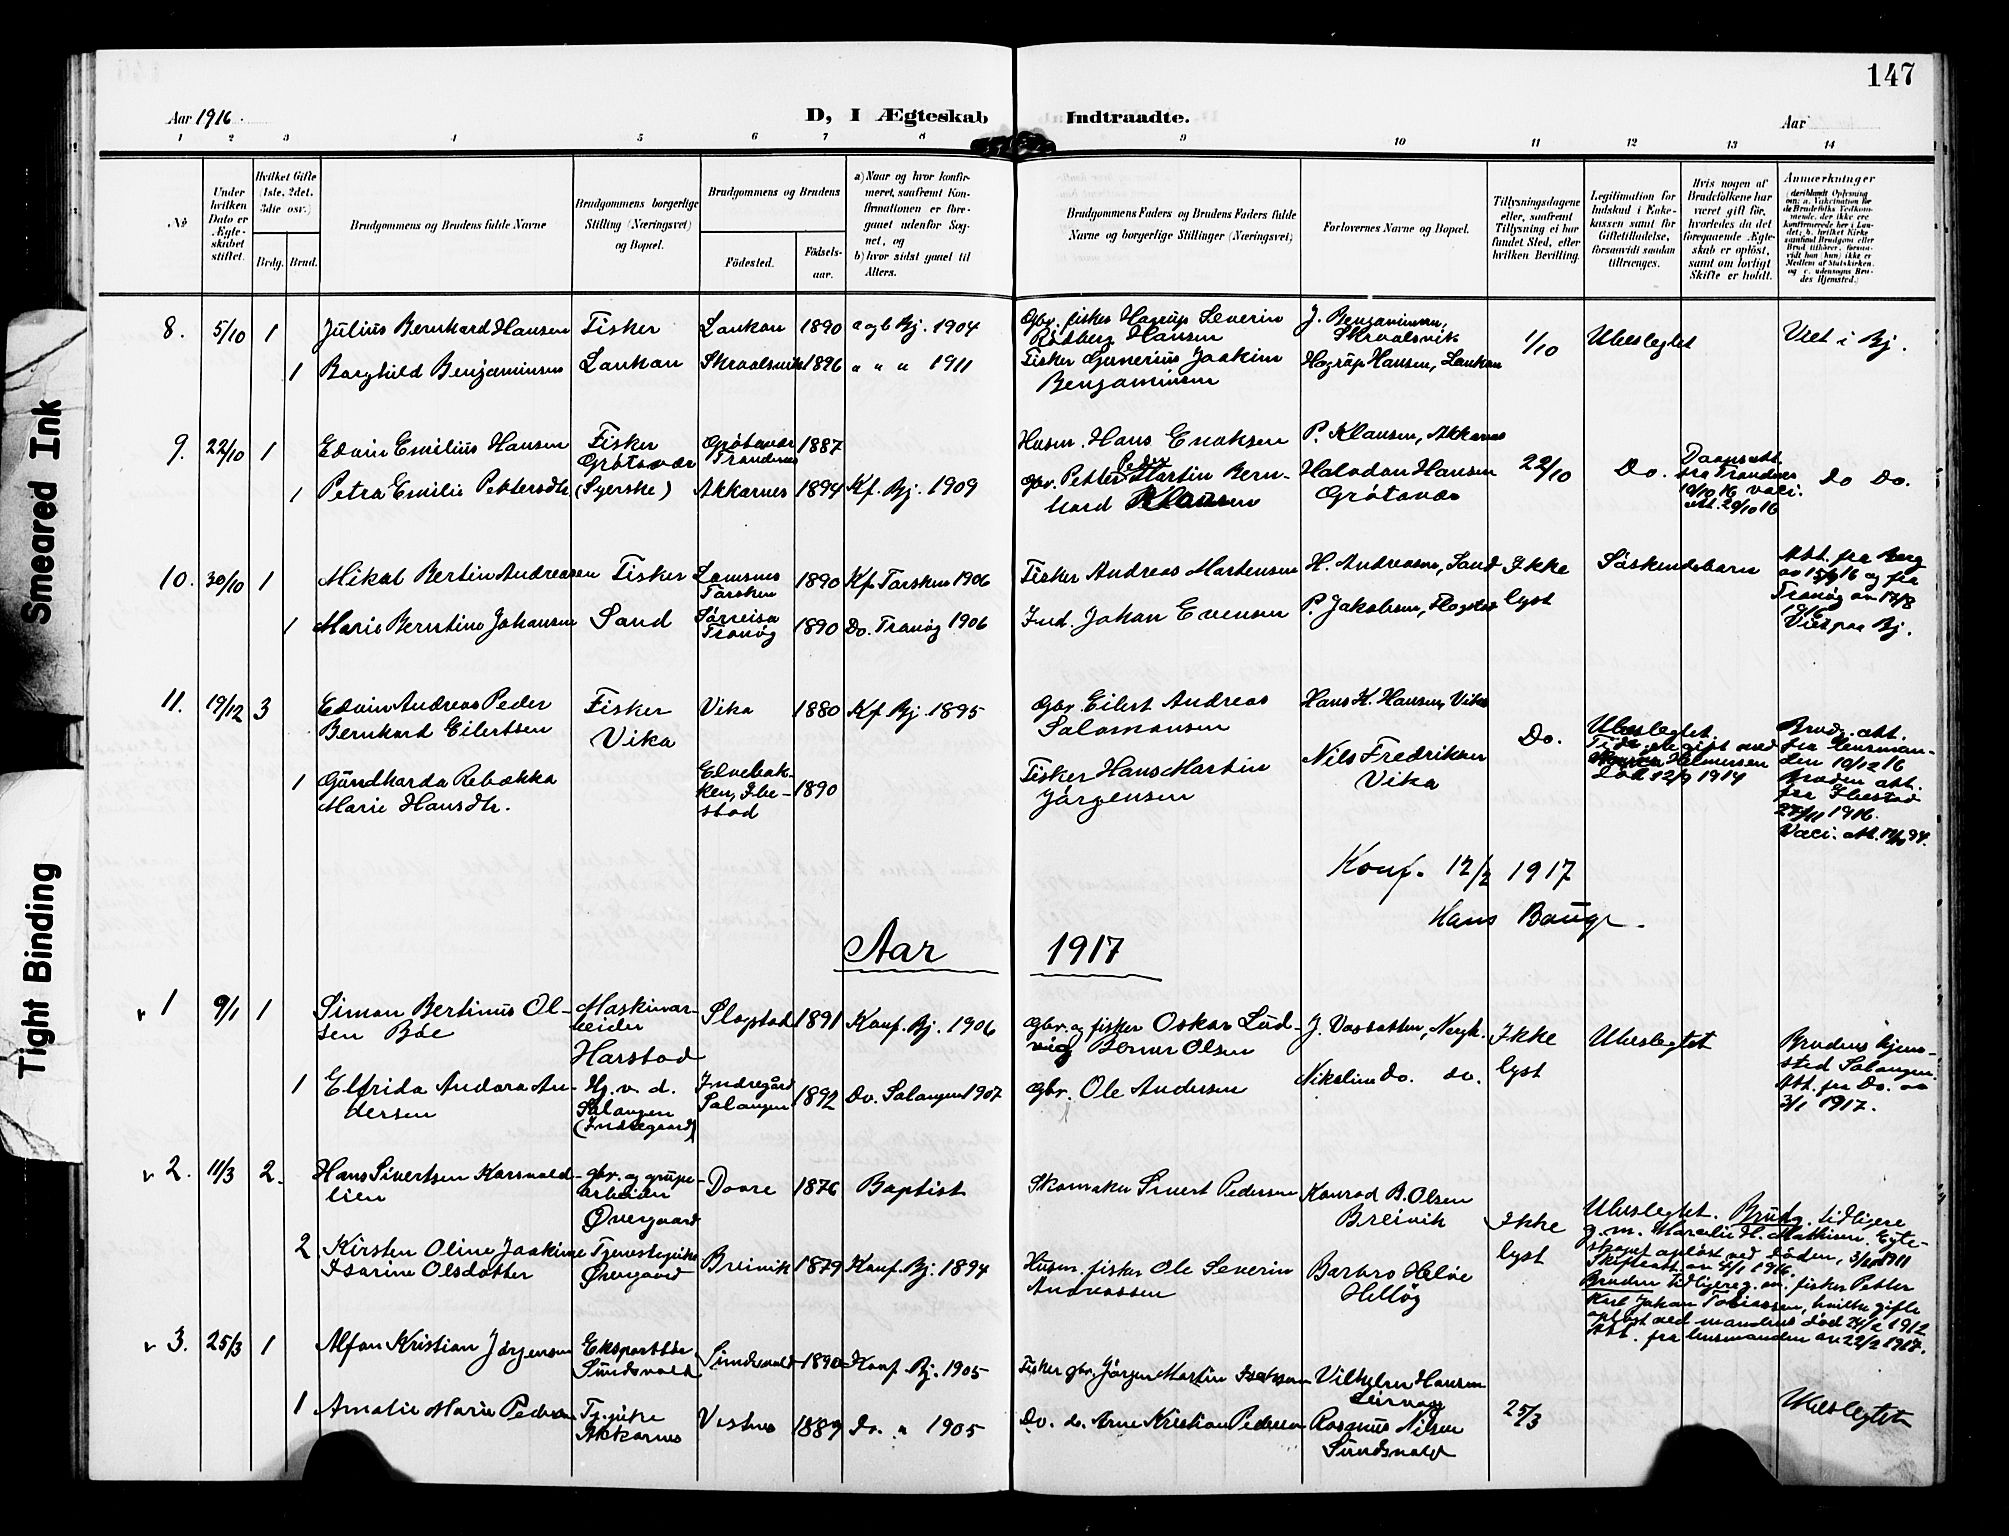 147
Aar 1916.
D, I Ægteskab Indtraadte.
Aar
1 2 3 4 5 6 7 8 9 10 11 12 13 14
№
Under hvilken Dato er Ægteskabet stiftet.
Hvilket Gifte (1ste, 2det, 3die osv.)
Brdg. Brud.
Brudgommens og Brudens fulde Navne
Brudgommens borgerlige Stilling (Næringsvei) og Bopæl.
Brudgommens og Brudens
Födested.
Födselsaar.
a) Naar og hvor konfirmeret, saafremt Konfirmationen er foregaaet udenfor Sognet, og
b) hvor sidst gaaet til Alters.
Brudgommens Faders og Brudens Faders fulde Navne og borgerlige Stillinger (Næringsvei)
Forlovernes Navne og Bopæl.
Tillysningsdagene eller, saafremt Tillysning ei har fundet Sted, efter hvilken Bevilling.
Legitimation for Indskud i Enkekassen samt for Giftetilladelse, forsaavidt saadan tiltrænges.
Hvis nogen af Brudefolkene har været gift för, hvorledes da det foregaaende Ægteskab er oplöst, samt om lovligt Skifte er holdt.
Anmærkninger
8. 5/10 1 Julius Bernhard Hansen Fisker Lankan 1890 a og b Bj. 1904 Gbr. fisker Hagrup Severin Rødberg Hansen J. Benjaminsen, Skroalsvik 1/10 Ubeslegtet Viet i Bj.
1 Borghild Benjaminsen Lankan Skroalsvik 1896 " " " 1911 Fisker Gunerius Joakim Benjaminsen Hagrup Hansen, Lankan
9. 22/10 1 Edvin Emilius Hansen Fisker Grøtavær Grøtavær Trondenes 1887 Husm. Hans Enoksen P. Klausen, Akkarnes 22/10 Do. Daapsatt. fra Trondenes 19/10 16 vacc. att. 20/10 16 Do Do.
1 Petra Emilie Pettersdtr (Syerske) Akkarnes 1894 Kf. Bj. 1909 Gbr. Petter Peder Martin Bernhard Klausen Halvdan Hansen Grøtavær
10. 30/10 1 Mikal Bertin Andreasen Fisker Lomsnes Torsken 1890 Kf. Torsken 1906 Fisker Andreas Mortensen H. Andreasen, Sand Ikke lyst Søskendebarn Att. fra Berg og fra Tranøy av 1916 Viet paa Bj.
1 Marie Berntine Johansen Sand Sørreisa Tranøy 1890 Do. Tranøy 1906 Ind. Johan Evensen P. Jakobsen,
11. 19/12 3 Edvin Andreas Peder Bernhard Eilertsen Fisker Vika Vika 1880 Kf. Bj. 1895 Gbr. Eilert Andreas Salomonsen Hans K. Hansen, Vika Do. Ubeslegtet. Tidl. gift med Helmersen Död 12/9 1914 Brudg. att. fra lensmanden 10/12 16
1 Gundharda Rebekka Marie Hansdtr. Elvebakken, Ibestad 1890 Fisker Hans Martin Jørgensen Nils Fredriksen Vika Bruden att. fra Ibestad 27/11 1916. Vacc. att.
Konf. 12/2 1917
Hans Bauge.
Aar 1917
1 9/1 1 Simon Bertinus Olsen Bøe Maskinarbeider Harstad Slagstad 1891 Konf. Bj. 1906 Gbr. og fisker Oskar Ludvig Olsen J. Vasbotten, Ikke lyst Ubeslegtet Brudens hjemsted Salangen. Att. fra Do. av 3/1 1917.
1 Elfrida Andora Andersen Hj. v. d. Salangen (Indregaard) Indregård Salangen 1892 Do. Salangen 1907 Gbr. Ole Andersen Nikoline Do. do.
2. 11/3 2. Hans Sivertsen Korsvoldlien gbr. og grubearbeider Øvergaard Dovre 1876 Baptist Skomaker Sivert Pedersen Konrad B. Olsen Breivik Ikke lyst Ubeslegtet. Brudg. tidligere g. m. H. Mathisen. Egteskapet opløst ved Døden, 1911 Skifteatt. av 4/1 1916.
2 Kirsten Oline Joakime Isarine Olsdatter Tjenestepike Øvergaard Breivik 1879 Konf. Bj. 1894 Husm. fisker Ole Severin Andreassen Barbro Helve Helløy Bruden tidligere g. m. fisker Petter Karl Johan Tobiassen, hvilke gifte opløst ved mandens død 24/2 1912 Att. fra lensmanden av 22/2 1917.
3. 25/3 1 Alfon Kristian Jørgensen Sundsvold Sundsvold 1890 Konf. Bj. 1905 Fisker gbr. Jørgen Martin Isaksen Vilhelm Hansen Leirvåg 25/3 Ubeslegtet
1 Amalie Marie Pedersen Tj.pike Akkarnes Vestnes 1889 Do. " 1905 Do. do. Arne Kristian Pedersen Rasmus Nilsen Sundsvold
Smeared Ink
Tight Binding